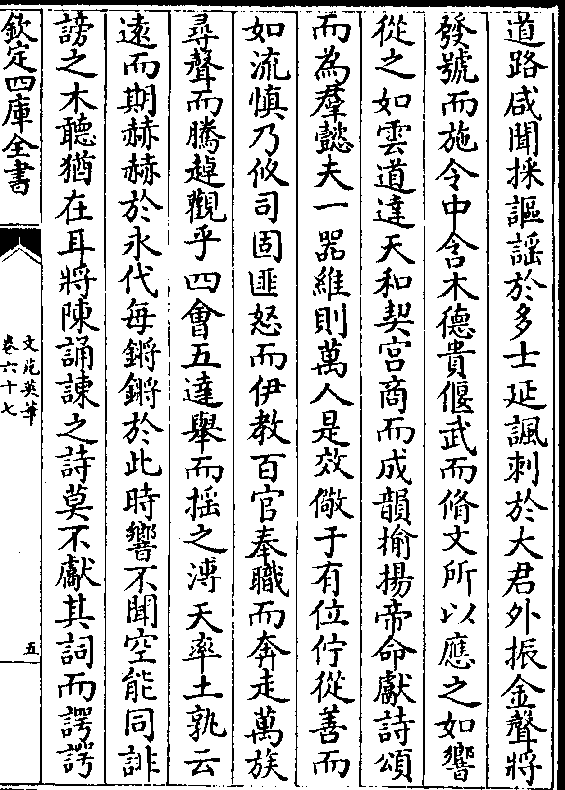 道路咸聞採謳謡於多士延諷刺於大君外振金聲將
發號而施令中含木德貴偃武而脩文所以應之如響
從之如雲道達天和契宫商而成韻揄揚帝命獻詩頌
而為羣懿夫一器維則萬人是效儆于有位佇從善而
如流慎乃攸司固匪怒而伊教百官奉職而奔走萬族
尋聲而騰趠觀乎四會五達舉而揺之溥天率土孰云
逺而期赫赫於永代每鏘鏘於此時響不聞空能同誹
謗之木聽猶在耳將陳誦諫之詩莫不獻其詞而諤諤
欽定四庫全書
文苑英華
卷六十七
五